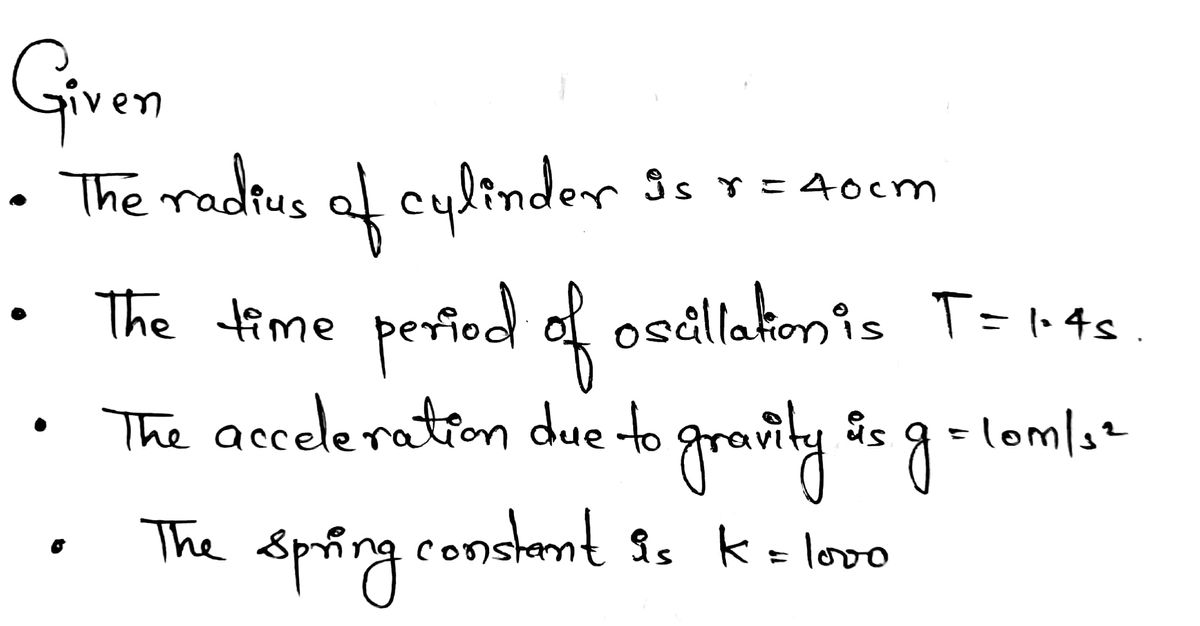 Given
• The radius of cylinder is r = 40cm
• The time period of oscillation is T = 1.4s.
• The acceleration due to gravity is g = 10m/s²
• The spring constant is K = 1000